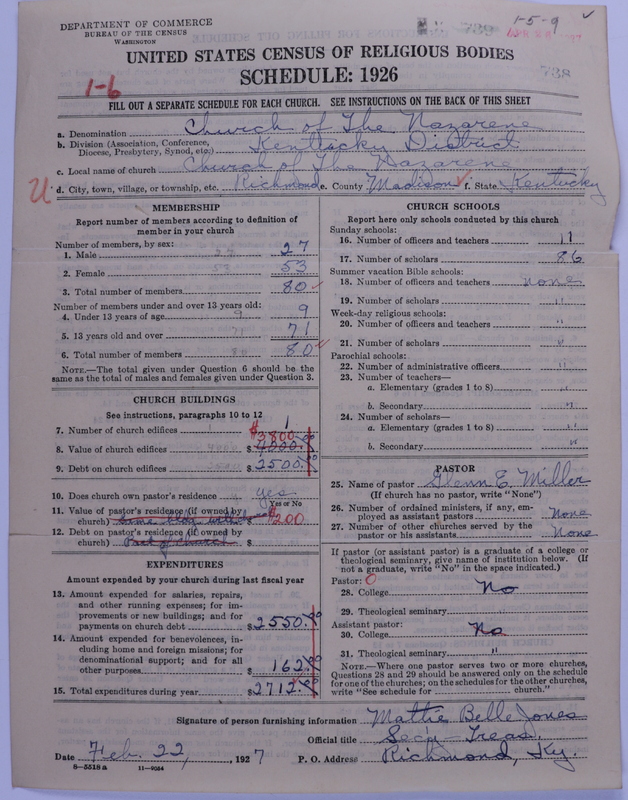 DEPARTMENT OF COMMERCE
BUREAU OF THE CENSUS
WASHINGTON
739
1-5-9 ✓
738
UNITED STATES CENSUS OF RELIGIOUS BODIES
SCHEDULE: 1926
1-6
FILL OUT A SEPARATE SCHEDULE FOR EACH CHURCH. SEE INSTRUCTIONS ON THE BACK OF THIS SHEET
a. Denomination Church of The Nazarene
b. Division (Association, Conference, Diocese, Presbytery, Synod, etc.) Kentucky District
c. Local name of church Church of The Nazarene
U d. City, town, village, or township, etc. Richmond e. County Madison ✓ f. State Kentucky
MEMBERSHIP
Report number of members according to definition of
member in your church
Number of members, by sex:
1. Male 27
2. Female 53
3. Total number of members 80 ✓
Number of members under and over 13 years old:
4. Under 13 years of age 9
5. 13 years old and over 71
6. Total number of members 80 ✓
NOTE.—The total given under Question 6 should be
same as the total of males and females given under Question 3.
CHURCH BUILDINGS
See instructions, paragraphs 10 to 12
7. Number of church edifices 1
$3800
8. Value of church edifices $4000.00
9. Debt on church edifices $2500.00
10. Does church own pastor's residence yes
Yes or No
11. Value of pastor's residence (if owned by
church) Same bldg with $200
12. Debt on pastor's residence (if owned by
church) Part of Church
EXPENDITURES
Amount expended by your church during last fiscal year
13. Amount expended for salaries, repairs,
and other running expenses; for im-
provements or new buildings; and for
payments on church debt $2550.00
14. Amount expended for benevolences, in-
cluding home and foreign missions; for
denominational support; and for all
other purposes $162.00
15. Total expenditures during year $2712.00
CHURCH SCHOOLS
Report here only schools conducted by this church
Sunday schools:
16. Number of officers and teachers 11
17. Number of scholars 86
Summer vacation Bible schools:
18. Number of officers and teachers none
19. Number of scholars "
Week-day religious schools:
20. Number of officers and teachers "
21. Number of scholars "
Parochial schools:
22. Number of administrative officers "
23. Number of teachers—
a. Elementary (grades 1 to 8) "
b. Secondary "
24. Number of scholars—
a. Elementary (grades 1 to 8) "
b. Secondary "
PASTOR
25. Name of pastor Glenn E. Miller
(If church has no pastor, write "None")
26. Number of ordained ministers, if any, em-
ployed as assistant pastors None
27. Number of other churches served by the
pastor or his assistants None
If pastor (or assistant pastor) is a graduate of a college or
theological seminary, give name of institution below. (If
not a graduate, write "No" in the space indicated.)
Pastor: 0
28. College No
29. Theological seminary
Assistant pastor:
30. College No
31. Theological seminary "
NOTE.—Where one pastor serves two or more churches,
Questions 28 and 29 should be answered only on the schedule
for one of the churches; on the schedules for the other churches,
write "See schedule for church."
Signature of person furnishing information Mattie Belle Jones
Official title Sec'y - Treas.
Date Feb. 22, 1927 P. O. Address Richmond, Ky
8-5518 a 11-9054